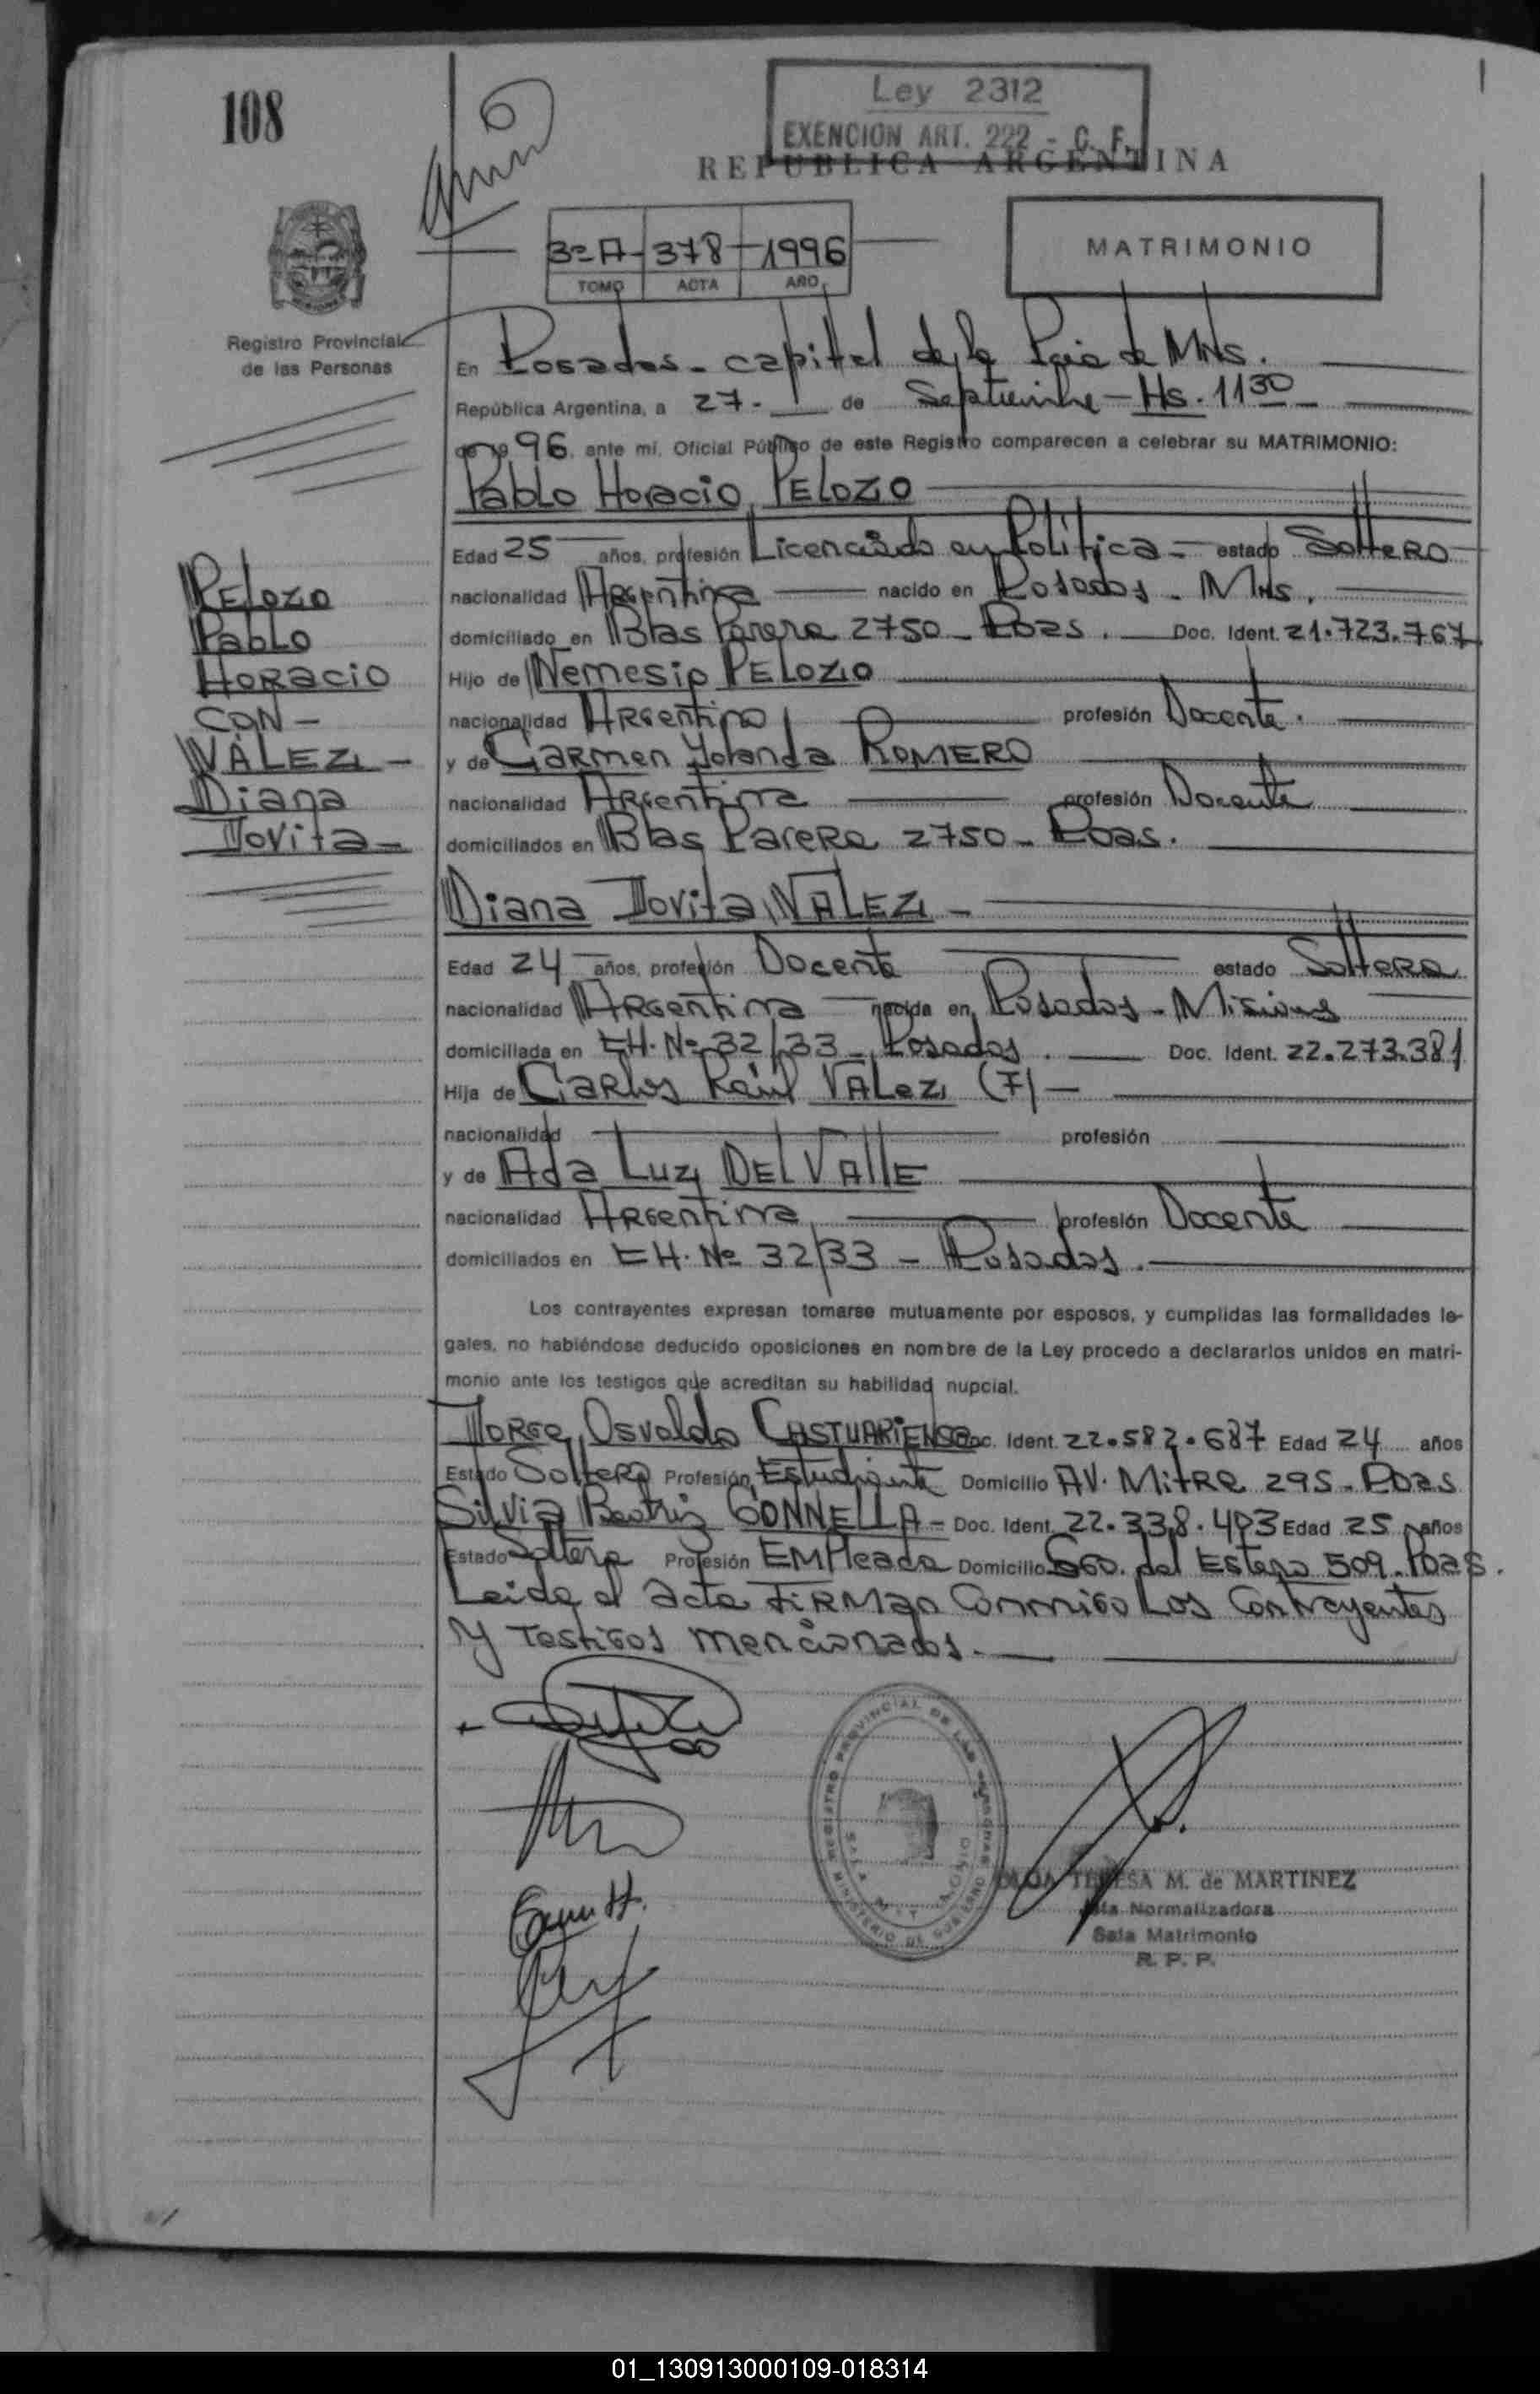 108
Ley 2312
EXENCION ART. 222 - C. F.
REPUBLICA ARGENTINA
3º A - 378 - 1996
TOMO ACTA AÑO
MATRIMONIO
Registro Provincial
de las Personas
En Posadas - capital de la Pcia de Mnes.
República Argentina, a 27 - de Septiembre - Hs. 11 30
de 19 96 ante mí, Oficial Público de este Registro comparecen a celebrar su MATRIMONIO:
Pablo Horacio PELOZO
Edad 25 años, profesión Licenciado en Política - estado Soltero
nacionalidad Argentina nacido en Posadas - Mnes.
domiciliado en Blas Parera 2750 - Pdas. Doc. Ident. 21.723.767
Hijo de Nemesio PELOZO
nacionalidad Argentino profesión Docente.
y de Carmen Yolanda ROMERO
nacionalidad Argentina profesión Docente
domiciliados en Blas Parera 2750 - Pdas.
Pelozo
Pablo
Horacio
CON -
VALEZ -
Diana
Jovita -
Diana Jovita VALEZ -
Edad 24 años, profesión Docente estado Soltera
nacionalidad Argentina nacida en Posadas - Misiones
domiciliada en CH. Nº 32/33 - Posadas. Doc. Ident. 22.273.381
Hija de Carlos Raúl VALEZ (F) -
nacionalidad profesión
y de Ada Luz DEL VALLE
nacionalidad Argentina profesión Docente
domiciliados en CH. Nº 32/33 - Posadas.
Los contrayentes expresan tomarse mutuamente por esposos, y cumplidas las formalidades le-
gales, no habiéndose deducido oposiciones en nombre de la Ley procedo a declararlos unidos en matri-
monio ante los testigos que acreditan su habilidad nupcial.
Jorge Osvaldo Doc. Ident. 22.582.687 Edad 24 años
Estado Soltero Profesión Estudiante Domicilio AV. Mitre 295 - Pdas
Silvia Beatriz GONNELLA - Doc. Ident. 22.338.403 Edad 25 años
Estado Soltera Profesión Empleada Domicilio Sgo. del Estero 509. Pdas.
Leida el acta firman conmigo los contrayentes
y testigos mencionados.
REGISTRO PROVINCIAL DE LAS PERSONAS
MINISTERIO DE GOBIERNO
TERESA M. de MARTINEZ
Normalizadora
Sala Matrimonio
R. P. P.
01_130913000109-018314